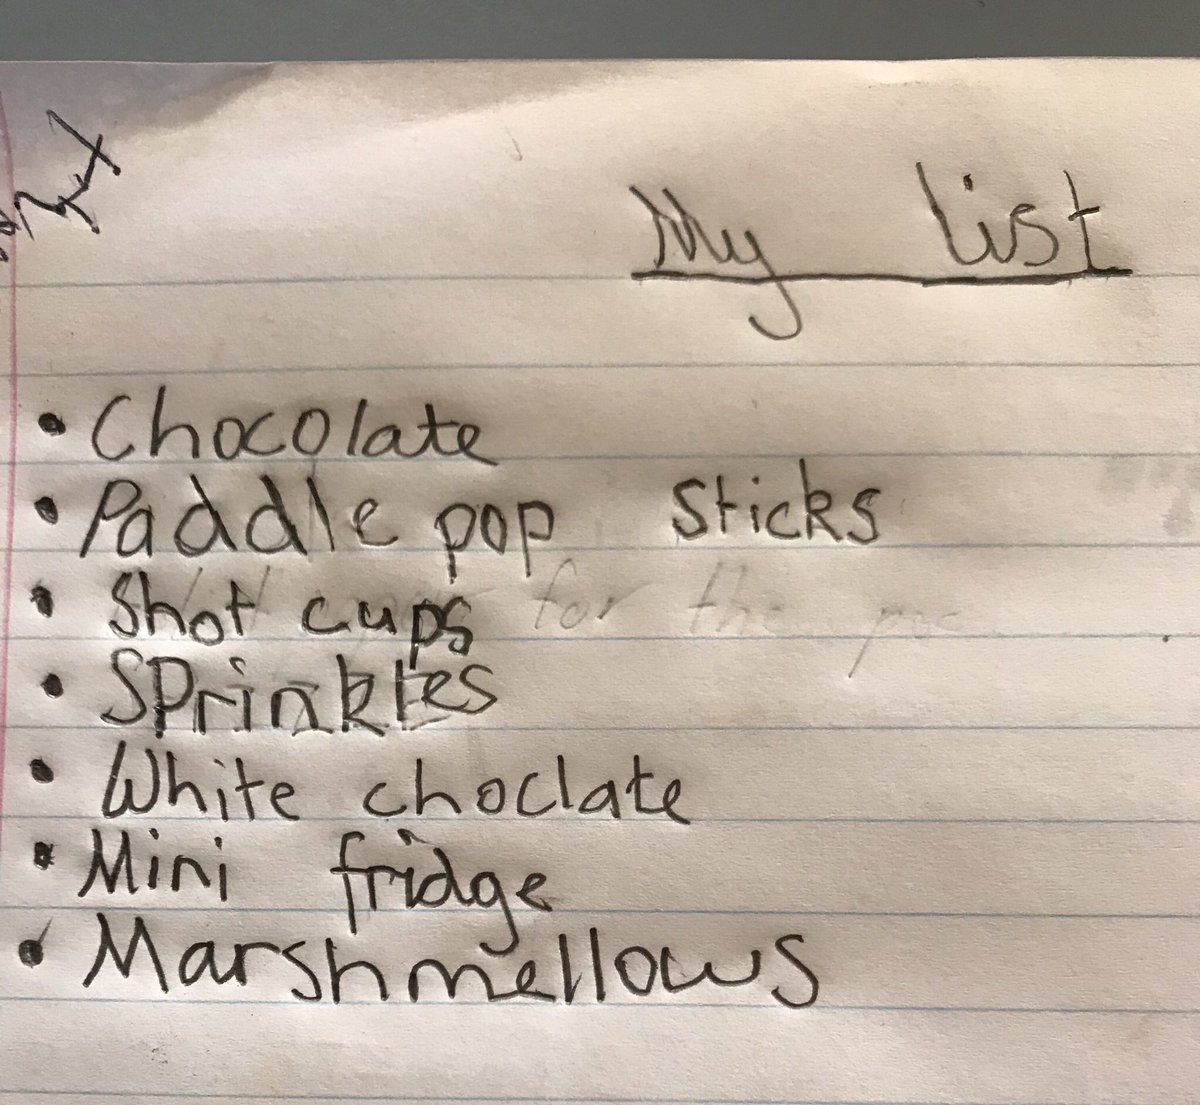 My list
• Chocolate
• Paddle pop sticks
• Shot cups for the
• Sprinkles
• White choclate
• Mini fridge
• Marshmellows